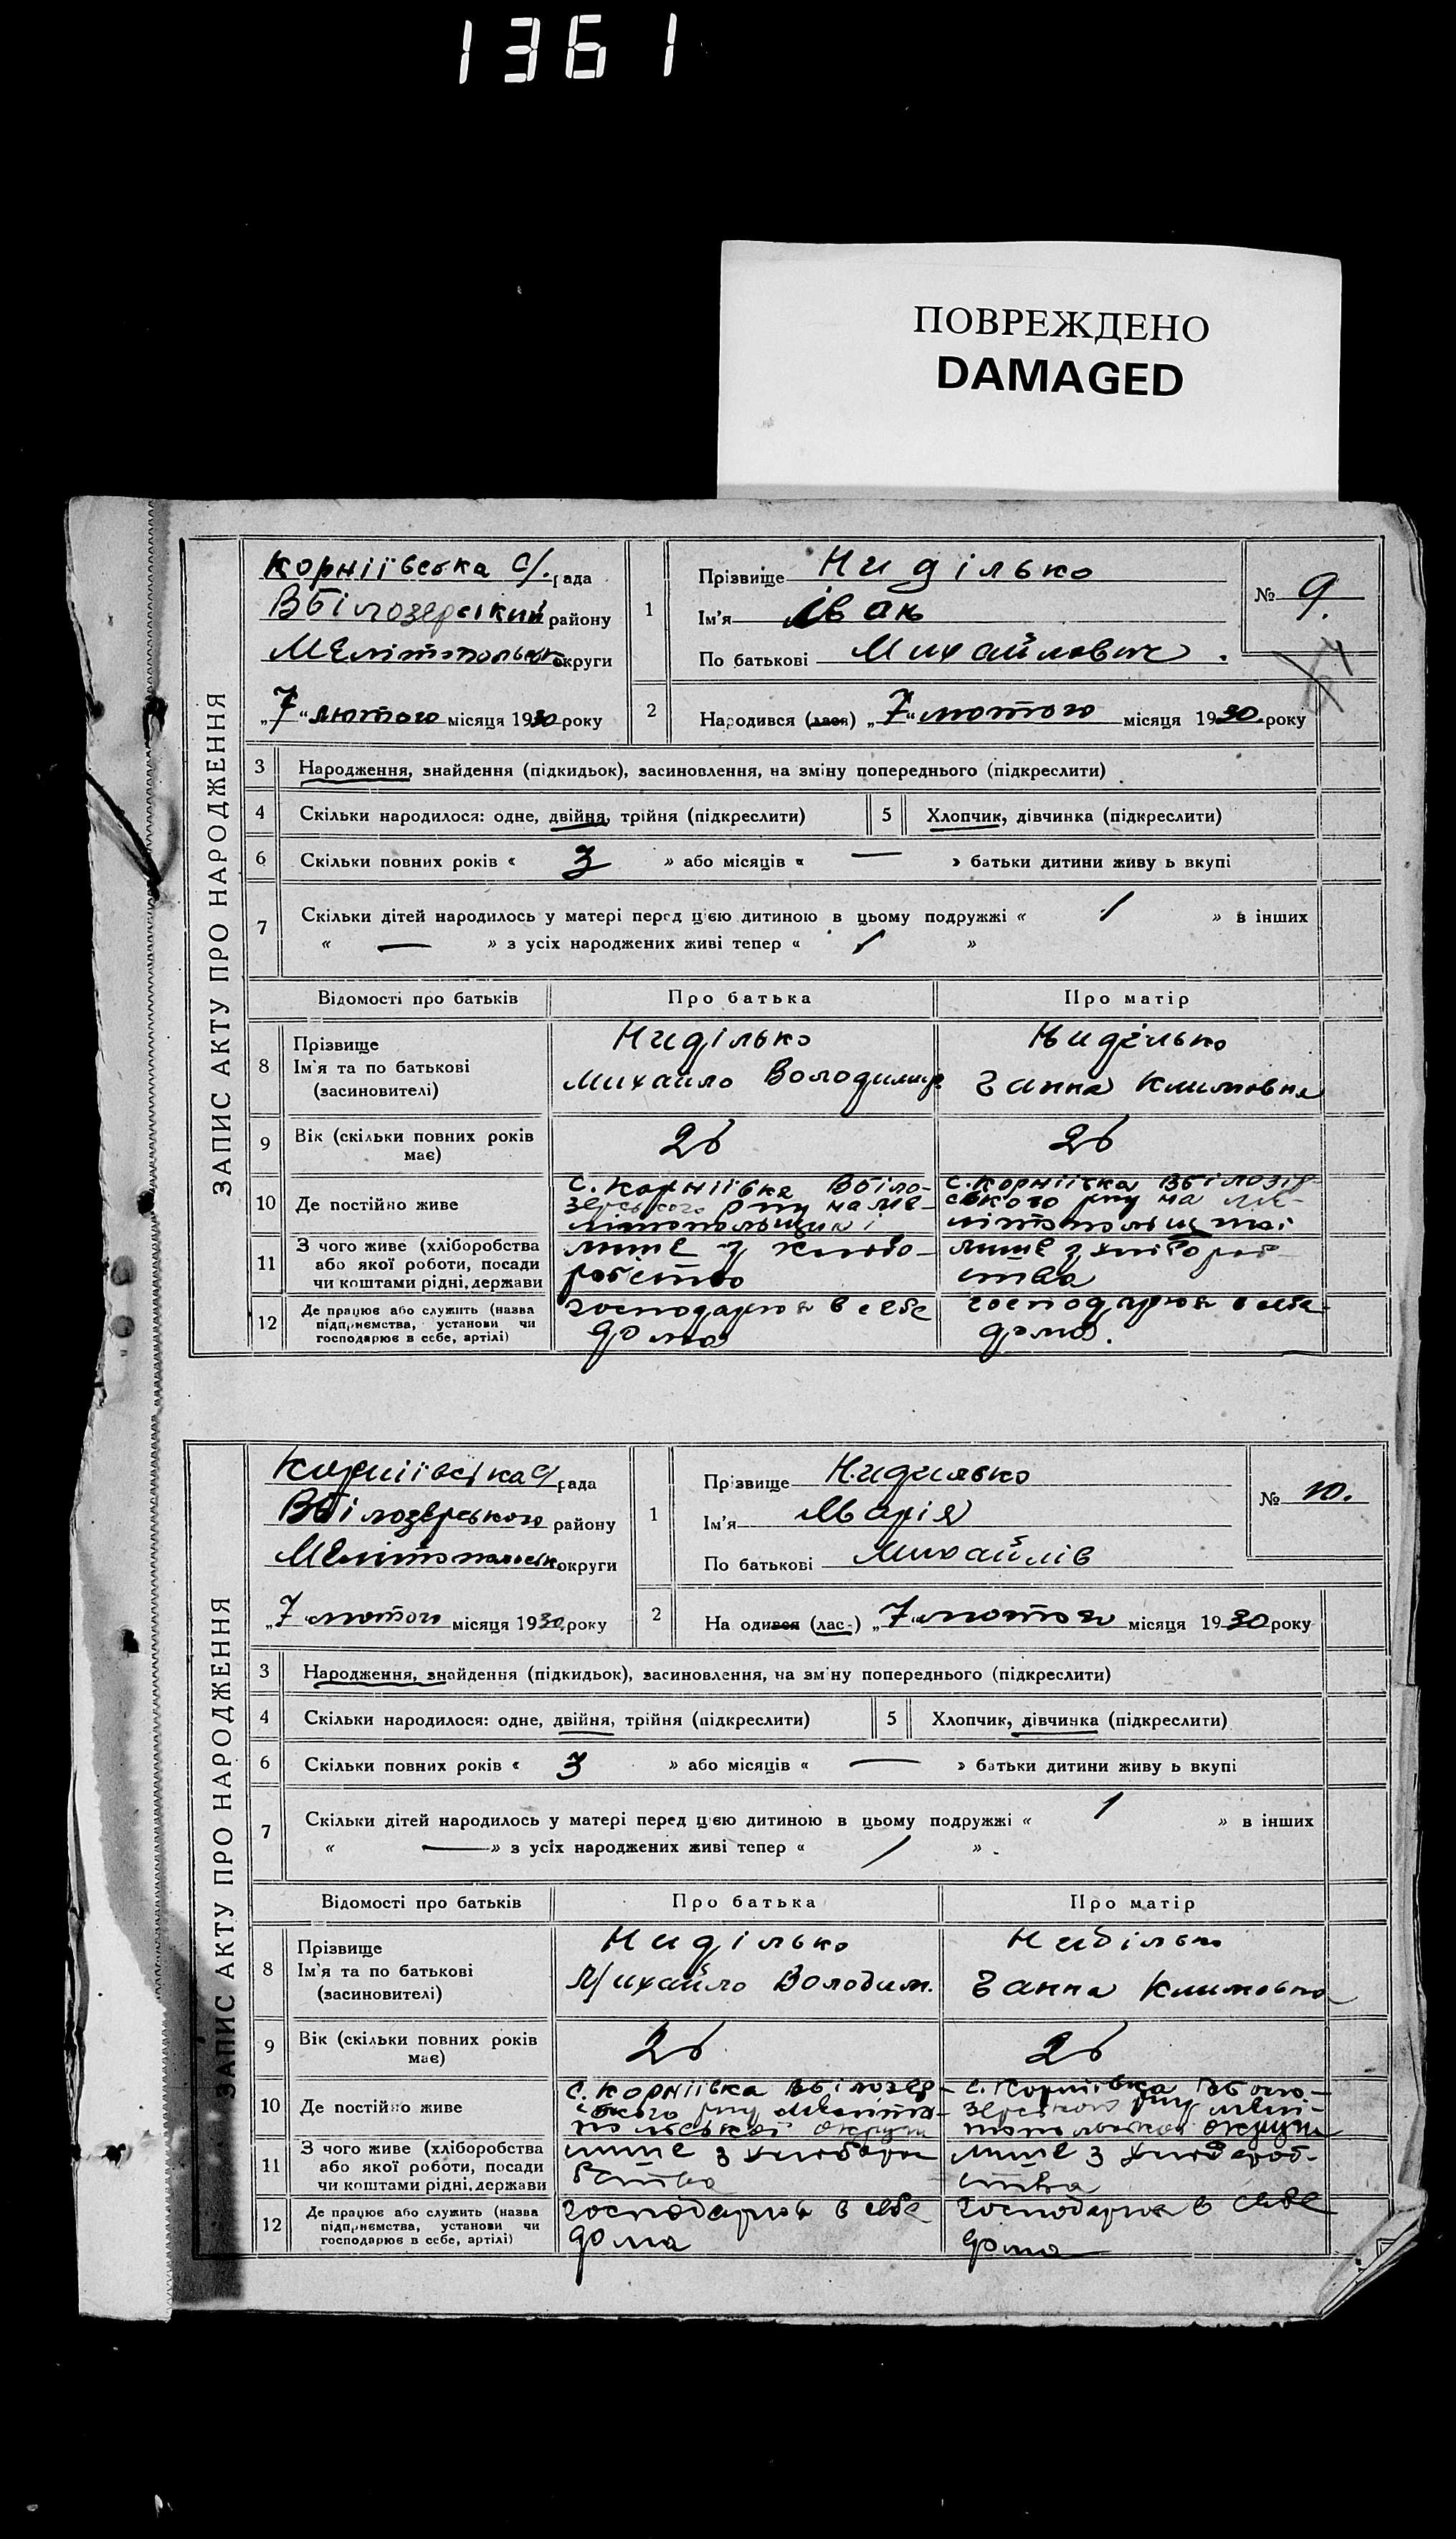 1361
ПОВРЕЖДЕНО
DAMAGED
ЗАПИС АКТУ ПРО НАРОДЖЕННЯ
Корніївська с/рада
Вбілозерський району
Мелітопольськ округи
„7“ лютого місяця 1930 року
1
Прізвище Ниділько
Ім'я Іван
По батькові Михайлович.
№ 9.
2
Народився (лася) „7“ лютого місяця 1930 року
3 Народження, знайдення (підкидьок), засиновлення, на зміну попереднього (підкреслити)
4 Скільки народилося: одне, двійня, трійня (підкреслити) 5 Хлопчик, дівчинка (підкреслити)
6 Скільки повних років « 3 » або місяців « — » батьки дитини живу ь вкупі
7 Скільки дітей народилось у матері перед цією дитиною в цьому подружжі « 1 » в інших
« — » з усіх народжених живі тепер « 1 »
Відомості про батьків Про батька Про матір
8 Прізвище
Ім'я та по батькові
(засиновителі)
Ниділько
Михайло Володимир
Ниділько
Ганна Климовна
9 Вік (скільки повних років
має)
26 26
10 Де постійно живе
с. Корніївка Вбіло-
зерського рну на Ме-
літопольщині
с. Корніївка Вбілозір
ського рну на Ме-
літопольщині
11 З чого живе (хліборобства
або якої роботи, посади
чи коштами рідні, держави
лише з хлібо-
робство
лише з хлібороб
ства
12 Де працює або служить (назва
підприємства, установи чи
господарює в себе, артілі)
господарюя в себе
дома
господарюя в себе
дома.
ЗАПИС АКТУ ПРО НАРОДЖЕННЯ
Корніівська с/рада
Вбілозерського району
Мелітопольськ округи
„7“ лютого місяця 1930 року
1
Прізвище Нидилько
Ім'я Марія
По батькові Михайлів
№ 10.
2
На одився (лас-) „7“ лютого місяця 1930 року
3 Народження, знайдення (підкидьок), засиновлення, на зміну попереднього (підкреслити)
4 Скільки народилося: одне, двійня, трійня (підкреслити) 5 Хлопчик, дівчинка (підкреслити)
6 Скільки повних років « 3 » або місяців « — » батьки дитини живу ь вкупі
7 Скільки дітей народилось у матері перед цією дитиною в цьому подружжі « 1 » в інших
« — » з усіх народжених живі тепер « 1 »
Відомості про батьків Про батька Про матір
8 Прізвище
Ім'я та по батькові
(засиновителі)
Ниділько
Михайло Володим.
Ниділько
Ганна Климовна
9 Вік (скільки повних років
має)
26 26
10 Де постійно живе
с. Корніівка Вбілозер-
ського рну Меліто-
польської округи
с. Корніівка Вбіло-
зерського рну Мелі-
топольської округи
11 З чого живе (хліборобства
або якої роботи, посади
чи коштами рідні, держави
лише з хлібора
бства
лише з хлібороб-
ства
12 Де працює або служить (назва
підприємства, установи чи
господарює в себе, артілі)
господарюя в себе
дома
господарюя в себе
дома